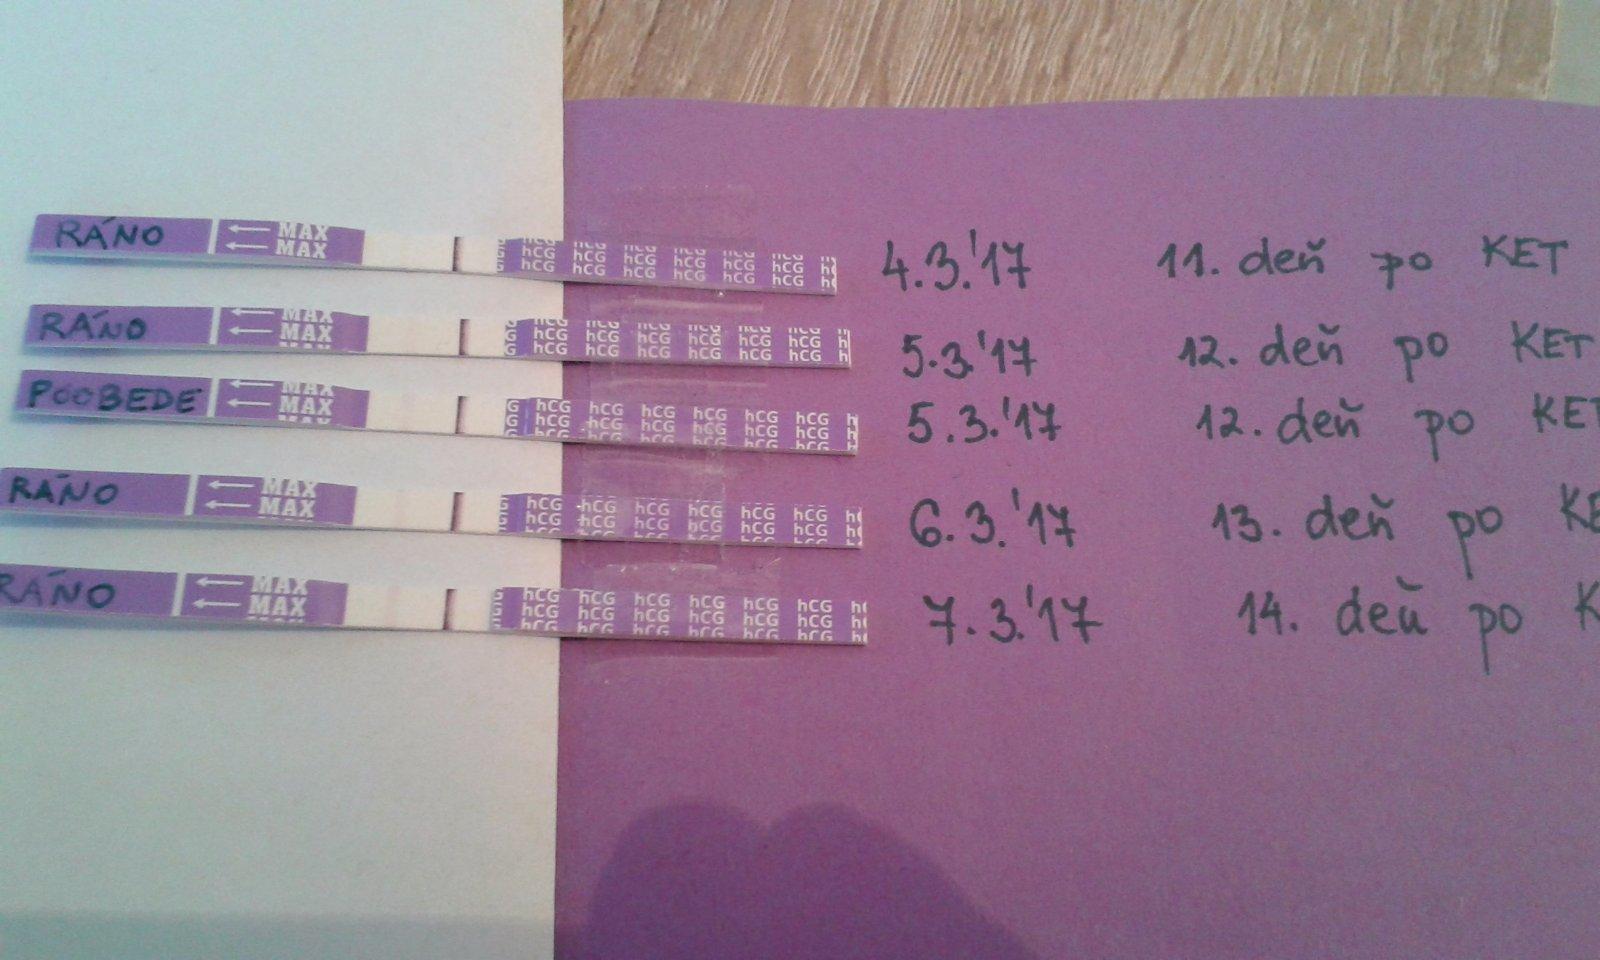 RÁNO ← MAX ← MAX hCG hCG hCG hCG hCG hCG 4.3.'17 11. deň po KET
RÁNO ← MAX ← MAX hCG hCG hCG hCG hCG hCG 5.3.'17 12. deň po KET
POOBEDE ← MAX ← MAX hCG hCG hCG hCG hCG hCG 5.3.'17 12. deň po KET
RÁNO ← MAX ← MAX hCG hCG hCG hCG hCG hCG 6.3.'17 13. deň po KE
RÁNO ← MAX ← MAX hCG hCG hCG hCG hCG hCG 7.3.'17 14. deň po K